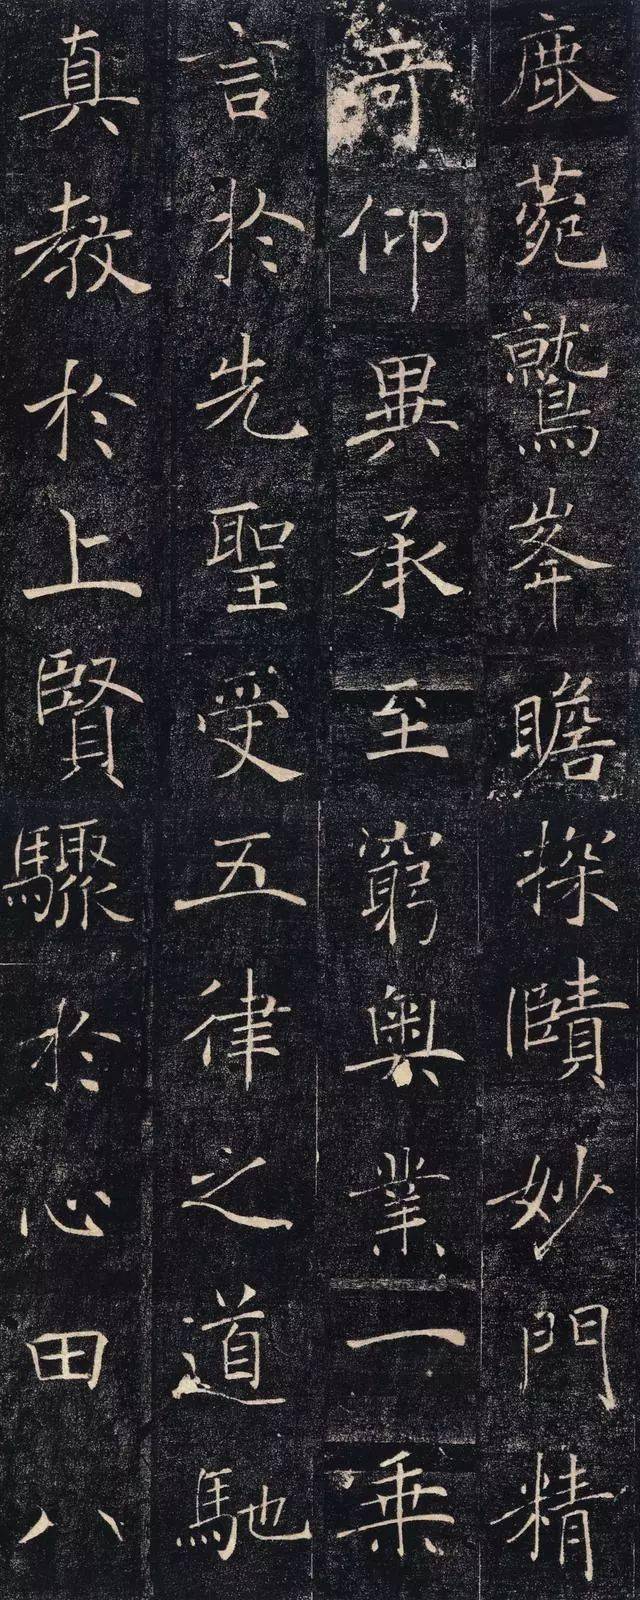 鹿菀鷲峯瞻
奇仰異承至
言於先聖受
真教於上賢
探賾妙門精
窮奥業一乗
五律之道馳
驟於心田八